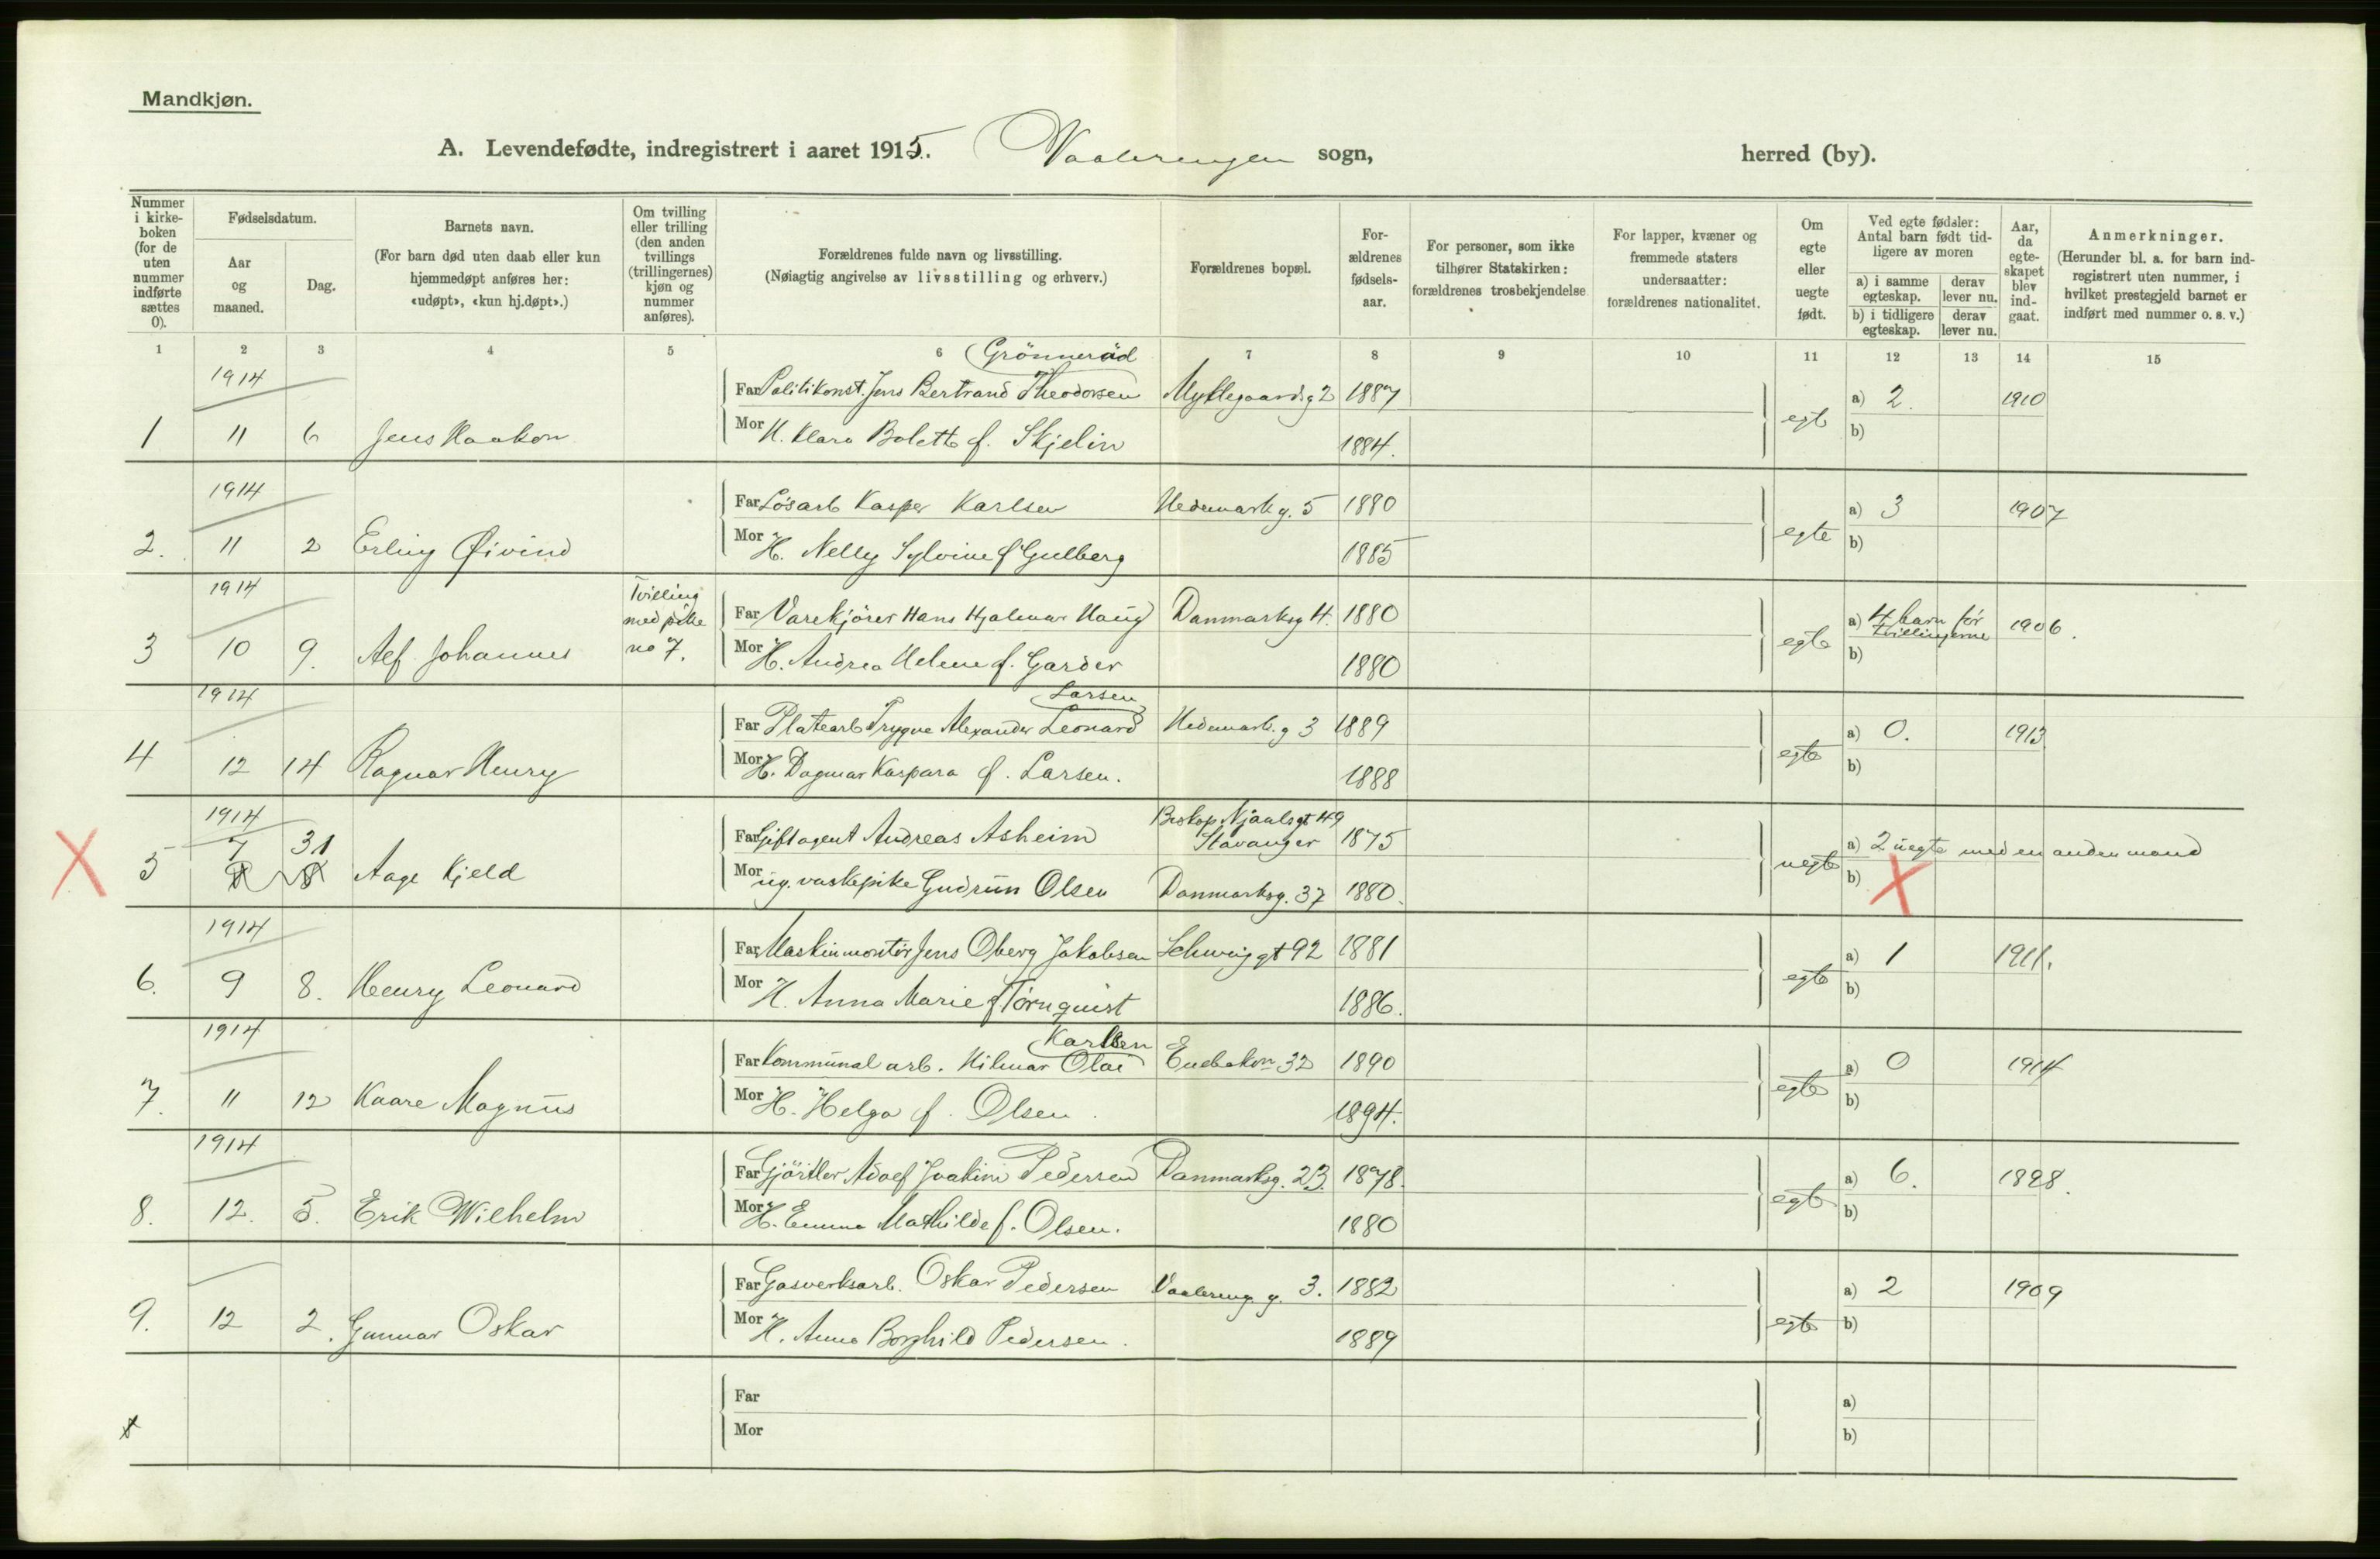 Mandkjøn.
A. Levendefødte, indregistrert i aaret 1915. Vaalerengen sogn, herred (by).
Nummer i kirke-boken (for de uten nummer indførte sættes 0).
Fødselsdatum.
Aar og maaned.
Dag.
Barnets navn.
(For barn død uten daab eller kun hjemmedøpt anføres her: «udøpt», «kun hj.døpt».)
Om tvilling eller trilling (den anden tvillings (trillingernes) kjøn og nummer anføres).
Forældrenes fulde navn og livsstilling.
(Nøiagtig angivelse av livsstilling og erhverv.)
Forældrenes bopæl.
For-ældrenes fødsels-aar.
For personer, som ikke tilhører Statskirken: forældrenes trosbekjendelse
For lapper, kvæner og fremmede staters undersaatter: forældrenes nationalitet.
Om egte eller uegte født.
Ved egte fødsler: Antal barn født tid-ligere av moren
a) i samme egteskap.
derav lever nu.
b) i tidligere egteskap.
derav lever nu.
Aar, da egte-skapet blev ind-gaat.
Anmerkninger.
(Herunder bl. a. for barn ind-registrert uten nummer, i hvilket prestegjeld barnet er indført med nummer o. s. v.)
1 2 3 4 5 6 7 8 9 10 11 12 13 14 15
1914 Grönneröd
Far Politikonst. Jens Bertrand Theodorsen Myklegaardsg 2 1887 a) 2. 1910
1 11 6 Jens Haakon Mor H. Klara Bolette f. Skjelin 1884. egte b)
1914
Far Løsarb Kasper Karlsen Hedemark g. 5 1880 a) 3 1907
2. 11 2 Erling Øivind Mor H. Nelly Sylvine f Gulberg 1885 egte b)
1914 Tvilling med pike no 7.
Far Varekjörer Hans Hjalmar Haug Danmarksg 4. 1880 a) 4 barn før tvillingerne 1906.
3 10 9. Alf Johannes Mor H. Andrea Helene f. Garder 1880 egte b)
1914 Larsen
Far Platearb Trygve Alexander Leonard Hedemark. g 3 1889 a) 0. 1913
4 12 14 Ragnar Henry Mor H. Dagmar Kaspara f. Larsen. 1888 egte b)
1914 Biskop Njaalsgt 49
7 31 Far agent Andreas Asheim Stavanger 1875 a) 2 uegte med en anden mand
5 Aage Kjeld Mor ug. vaskepike Gudrun Olsen Danmarksg. 37 1880. uegte b)
1914
Far Maskinmontör Jens Oberg Jakobsen Schweig gt 92 1881 a) 1 1911.
6. 9 8. Henry Leonard Mor H. Anna Marie f Törnquist 1886. egte b)
1914 Karlsen
Far Kommunal arb. Hilmar Olai Enebakvn 32 1890 a) 0 1914
7. 11 12 Kaare Magnus Mor H. Helga f. Olsen. 1894. egte b)
1914
Far Gjörtler Adolf Joakim Pedersen Danmarksg. 23. 1878. a) 6. 1898.
8. 12. 5. Erik Wilhelm Mor H. Emma Mathilde f. Olsen. 1880 egte b)
Far Gasverksarb. Oskar Pedersen Vaalereng. g. 3. 1882 a) 2 1909
9. 12 2. Gunnar Oskar Mor H. Anna Borghild Pedersen. 1889 egte b)
Far a)
Mor b)